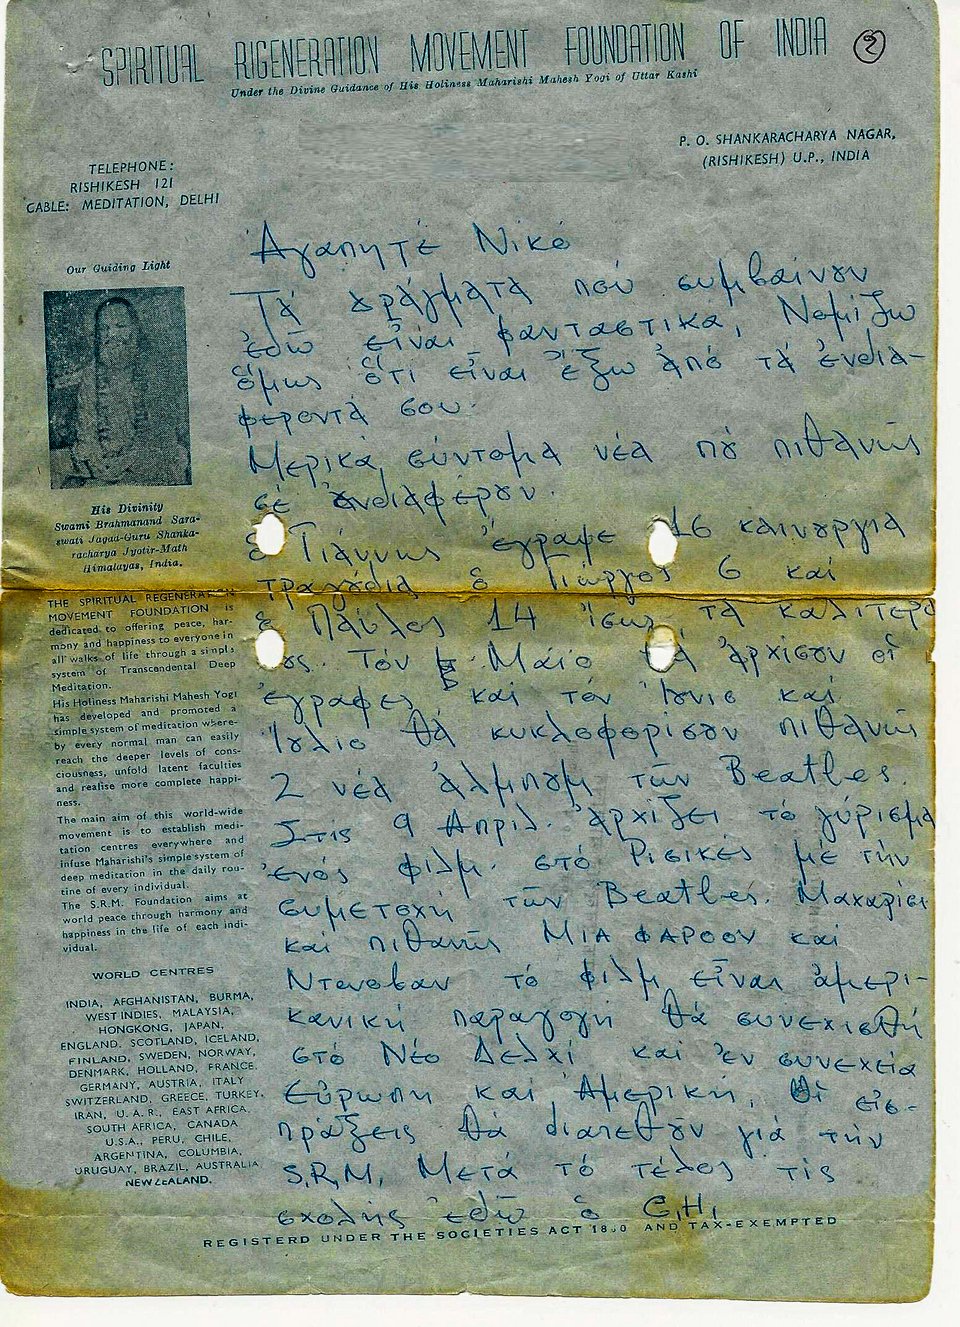 SPIRITUAL RIGENERATION MOVEMENT FOUNDATION OF INDIA
Under the Divine Guidance of His Holiness Maharishi Mahesh Yogi of Uttar Kashi
P. O. SHANKARACHARYA NAGAR,
(RISHIKESH) U.P., INDIA
TELEPHONE:
RISHIKESH 121
CABLE: MEDITATION, DELHI
Our Guiding Light
His Divinity
Swami Brahmanand Sara-
swati Jagad-Guru Shanka-
racharya Jyotir-Math
Himalayas, India.
THE SPIRITUAL REGENERATION
MOVEMENT FOUNDATION is
dedicated to offering peace, har-
mony and happiness to everyone in
all walks of life through a simple
system of Transcendental Deep
Meditation.
His Holiness Maharishi Mahesh Yogi
has developed and promoted a
simple system of meditation where-
by every normal man can easily
reach the deeper levels of cons-
ciousness, unfold latent faculties
and realise more complete happi-
ness.
The main aim of this world-wide
movement is to establish medi-
tation centres everywhere and
infuse Maharishi's simple system of
deep meditation in the daily rou-
tine of every individual.
The S.R.M. Foundation aims at
world peace through harmony and
happiness in the life of each indi-
vidual.
WORLD CENTRES
INDIA, AFGHANISTAN, BURMA,
WEST INDIES, MALAYSIA,
HONGKONG, JAPAN,
ENGLAND, SCOTLAND, ICELAND,
FINLAND, SWEDEN, NORWAY,
DENMARK, HOLLAND, FRANCE,
GERMANY, AUSTRIA, ITALY
SWITZERLAND, GREECE, TURKEY,
IRAN, U. A. R., EAST AFRICA,
SOUTH AFRICA, CANADA
U.S.A., PERU, CHILE,
ARGENTINA, COLUMBIA,
URUGUAY, BRAZIL, AUSTRALIA
NEW ZEALAND.
Ἀγαπητέ Νίκο
Τά πράγματα πού συμβαίνουν
ἐδῶ εἶναι φανταστικά, Νομίζω
ὅμως ὅτι εἶναι ἔξω ἀπό τά ἐνδια-
φεροντά σου.
Μερικά σύντομα νέα πού πιθανῶς
σέ ἐνδιαφέρουν.
ὁ Γιάννης ἔγραψε 16 καινουργια
τραγούδια ὁ Γιώργος 6 και
ὁ Παύλος 14 ἴσως τά καλιτερα
τους. Τόν Μάιο θά ἀρχίσουν οἱ
ἐγραφες και τόν Ἰουνιο καί
Ἰουλιο θά κυκλοφορίσουν πιθανῶς
2 νέα ἄλμπουμ τῶν Beatles.
Στις 9 Απριλ. ἀρχίζει τό γύρισμα
ἑνός φιλμ. στό Ρισικές μέ τήν
συμετοχή τῶν Beatles. Μαχαρισι
και πιθανῶς ΜΙΑ ΦΑΡΟΟΥ και
Ντονοβαν τό φιλμ εἶναι ἀμερι-
κανική παραγογή θά συνεχισθῆ
στό Νέο Δελχί και ἐν συνεχεία
Εὐρωπη και Ἀμερική, Οἱ εἰσ-
πράξεις θά διατεθοῦν γιά τήν
S.R.M. Μετά τό τέλος τίς
σχολής ἐδῶ ὁ G.H.
REGISTERD UNDER THE SOCIETIES ACT AND TAX-EXEMPTED